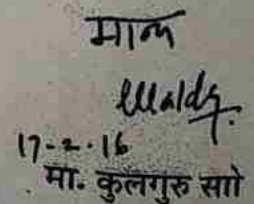 मान्य
17-2-16
मा. कुलगुरु सो